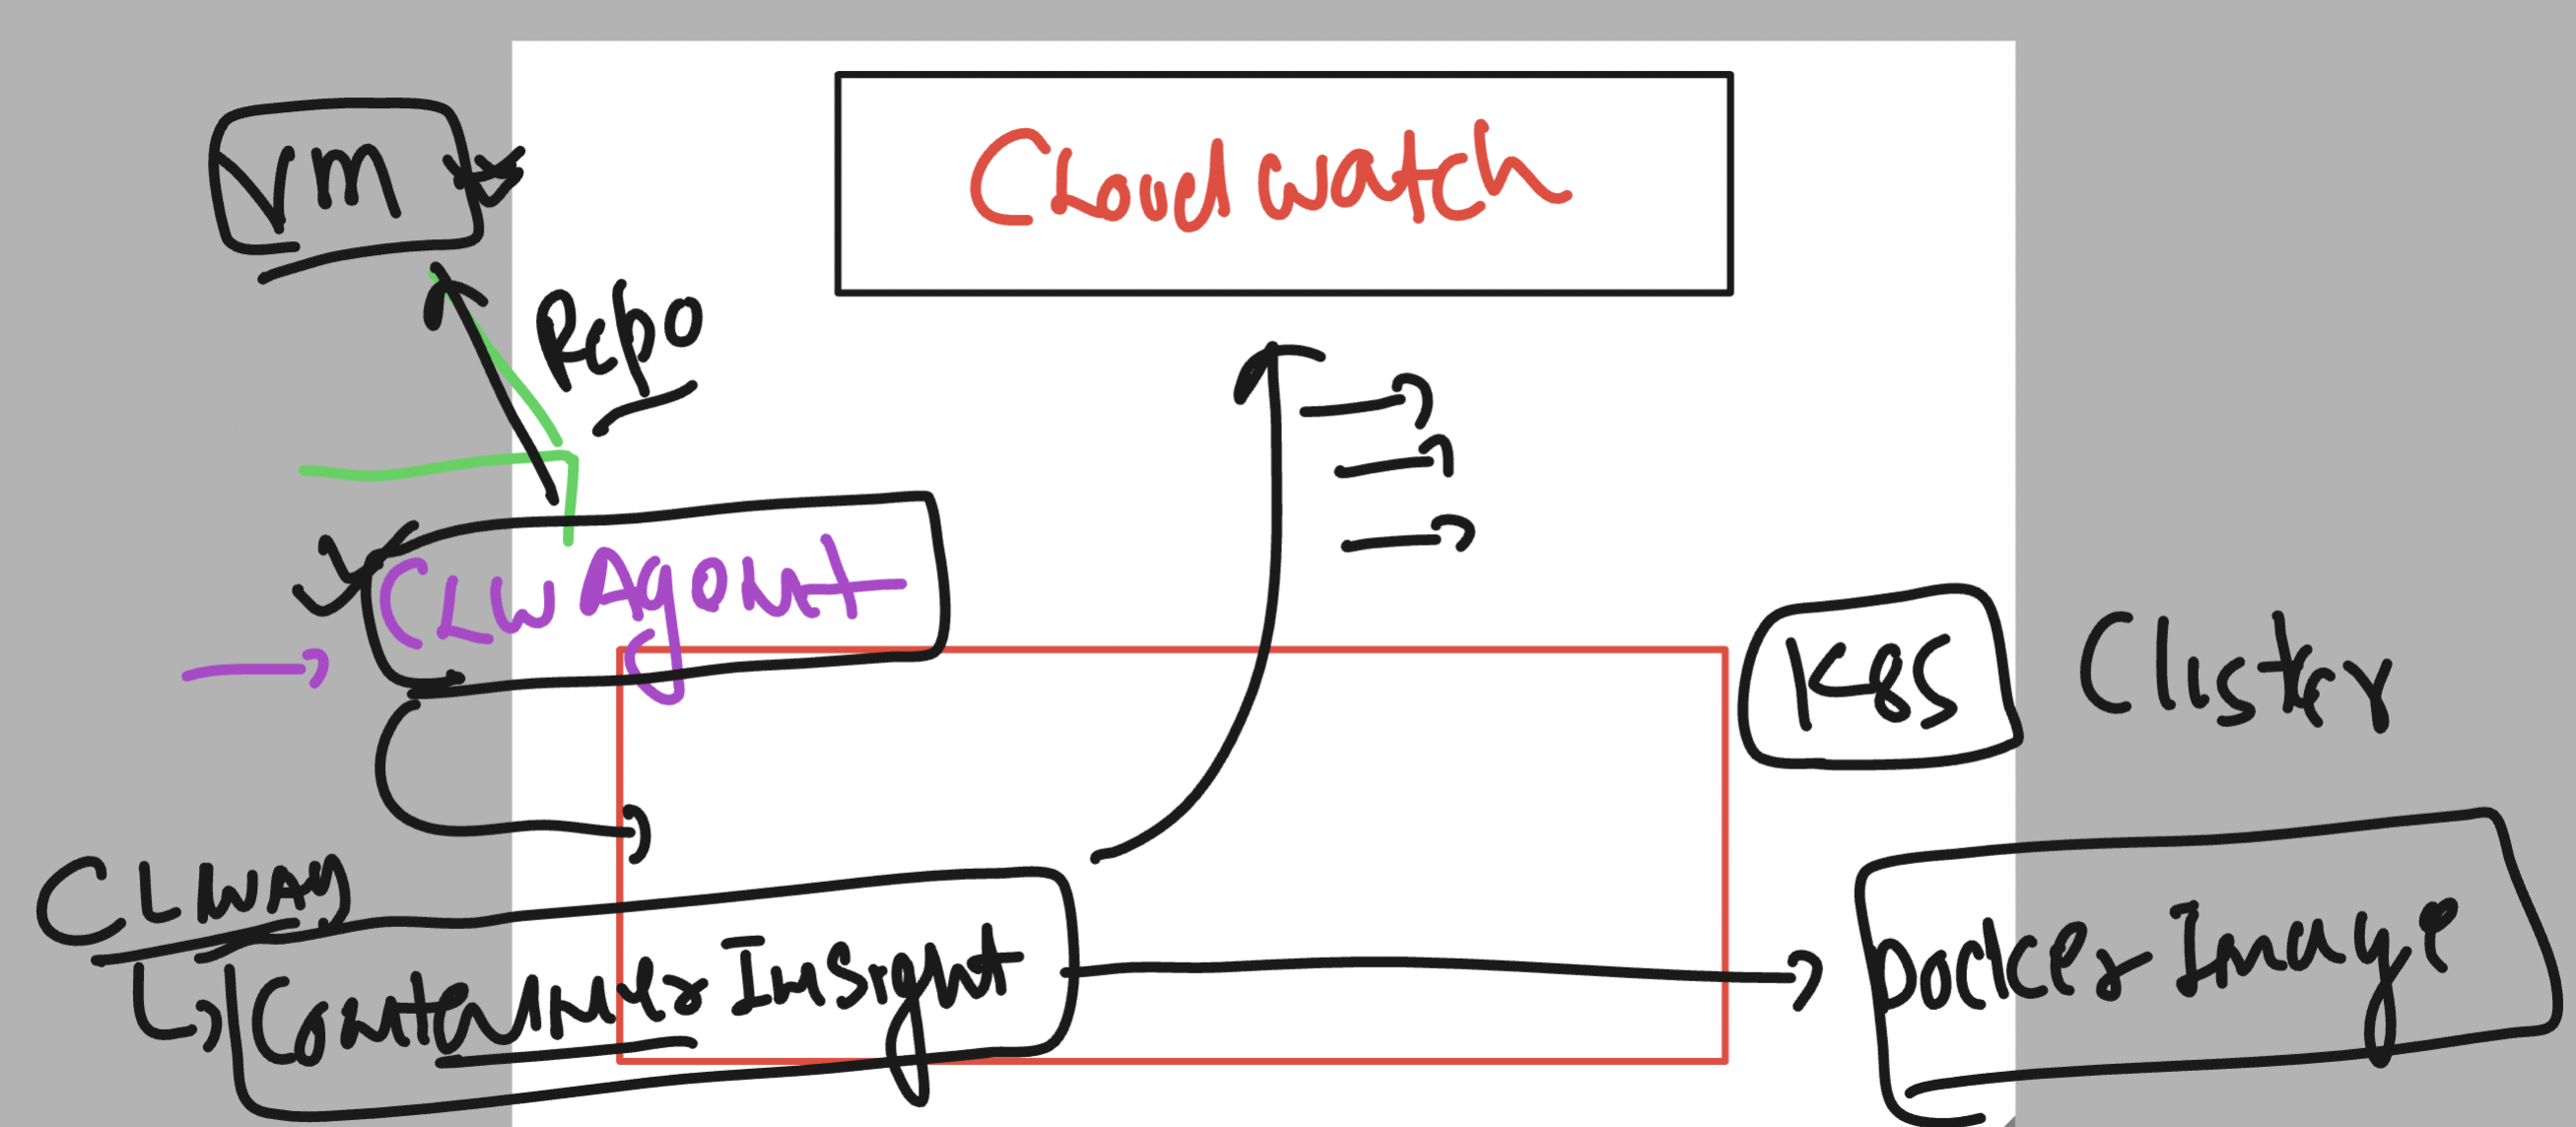 VM
CLoudwatch
Repo
CLW Agent
K8S Clister
CLWAg
Container Insight
Docker Image